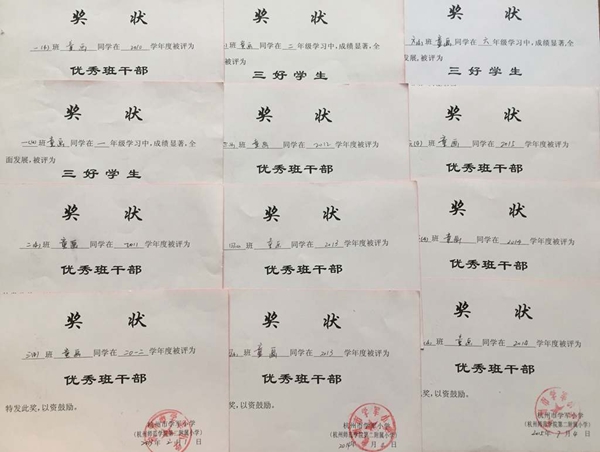 奖 状
一(4)班 童画 同学在 2010 学年度被评为
优秀班干部
奖 状
班 童画 同学在 二 年级学习中,成绩显著,全
展,被评为
三 好 学 生
奖 状
班 童画 同学在 六 年级学习中,成绩显著,全
发展,被评为
三 好 学 生
奖 状
一(4)班 童画 同学在 一 年级学习中,成绩显著,全
面发展,被评为
三 好 学 生
奖 状
班 童画 同学在 2012 学年度被评为
优秀班干部
奖 状
班 童画 同学在 2015 学年度被评为
优秀班干部
奖 状
二(4)班 童画 同学在 2011 学年度被评为
优秀班干部
奖 状
班 童画 同学在 2013 学年度被评为
优秀班干部
奖 状
班 童画 同学在 2014 学年度被评为
优秀班干部
奖 状
三(4)班 童画 同学在 20-2 学年度被评为
优秀班干部
特发此奖,以资鼓励。
杭州市学军小学
(杭州师范学院第二附属小学)
月 日
奖 状
班 童画 同学在 2013 学年度被评为
优秀班干部
奖,以资鼓励。
杭州市学军小学
(杭州师范学院第二附属小学)
年 月 日
奖 状
班 童画 同学在 2014 学年度被评为
优秀班干部
奖,以资鼓励。
杭州市学军小学
(杭州师范学院第二附属小学)
2015 年 7 月 日